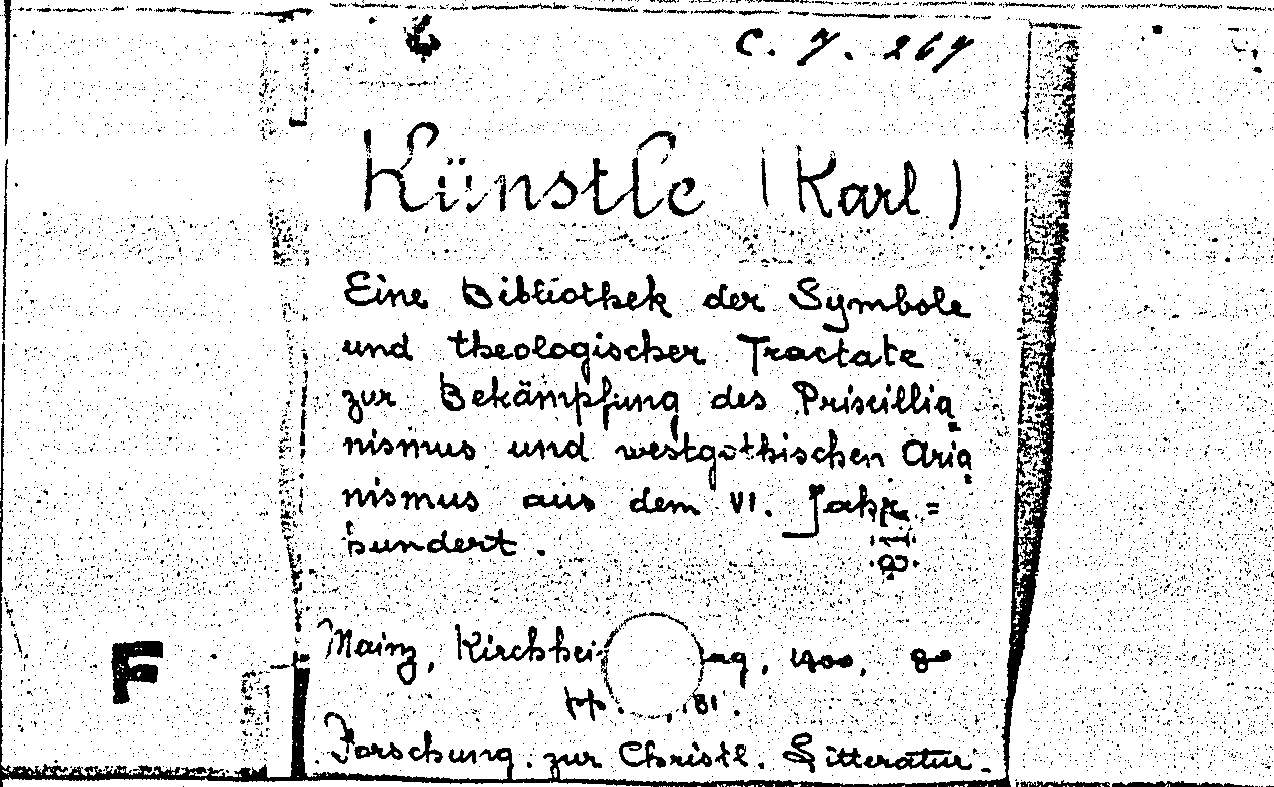 C. 7. 267
Künstle (Karl)
Eine Bibliothek der Symbole
und theologischer Tractate
zur Bekämpfung des Priscillia
nismus und westgothischen Aria
nismus aus dem VI. Jahr=
hundert.
F
Mainz, 1900, 8°
pp. 181.
Forschung. zur Christl. Litteratur.